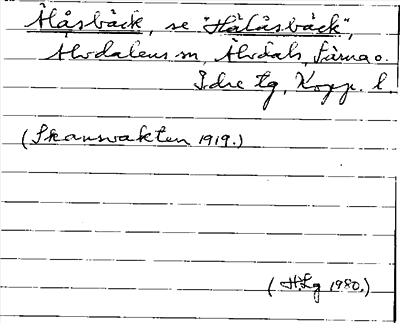 Ålåsbäck, se "Hålåsbäck",
Älvdalens sn, Älvdals, Särna o.
Idre tg, Kopp. l.
(Skansvakten 1919.)
(HLg 1980.)